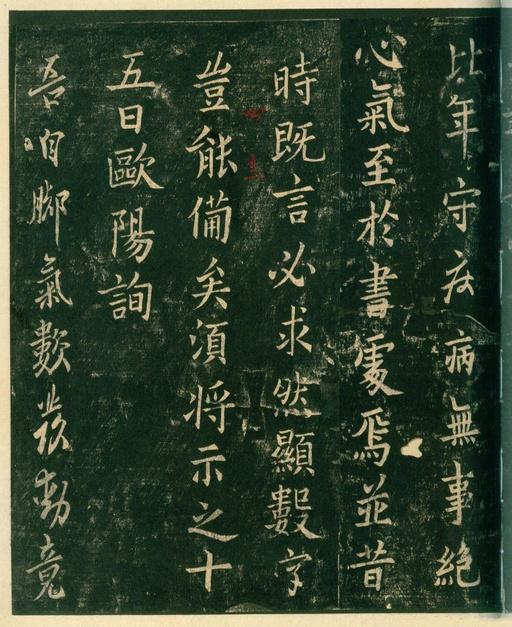 比年守疾病無事絕
心氣至於書處焉並昔
時既言必求然顯數字
豈能備矣須將示之十
五日歐陽詢
吾咱腳氣數發動竟